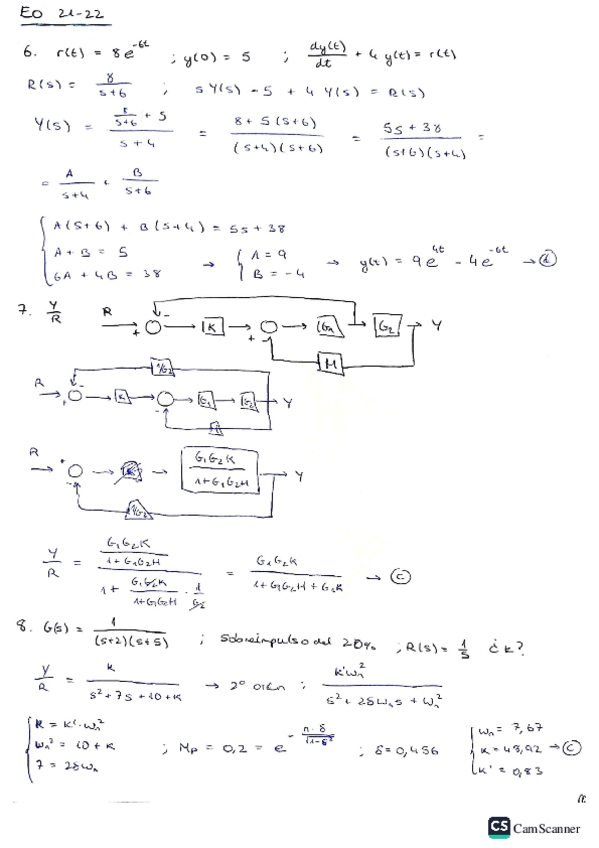 EO 21-22
6. r(t) = 8e^-6t ; y(0) = 5 ; dy(t)/dt + 4 y(t) = r(t)
R(s) = 8/(s+6) ; sY(s) - 5 + 4 Y(s) = R(s)
Y(s) = (8/(s+6) + 5)/(s+4) = (8 + 5(s+6))/((s+4)(s+6)) = (5s + 38)/((s+6)(s+4)) =
= A/(s+4) + B/(s+6)
A(s+6) + B(s+4) = 5s + 38
A + B = 5
6A + 4B = 38 → A = 9 B = -4 → y(t) = 9e^4t - 4e^-6t → d
7. Y/R
R + - K + - G1 G2 Y
H
1/G2
R + - K - G1 G2 Y
H
R + - K G1G2K/(1+G1G2H) Y
1/G2
Y/R = (G1G2K/(1+G1G2H))/(1 + G1G2K/(1+G1G2H) · 1/G2) = G1G2K/(1+G1G2H+G1K) → c
8. G(s) = 1/((s+2)(s+5)) ; Sobreimpulso del 20% ; R(s) = 1/s ¿k?
Y/R = k/(s²+7s+10+k) → 2º orden ; k'wn²/(s²+2δwns+wn²)
k = k'·wn²
wn² = 10 + k
7 = 2δwn
; Mp = 0,2 = e^-(π·δ/√(1-δ²)) ; δ = 0,456
wn = 7,67
k = 48,92 → c
k' = 0,83
CS CamScanner